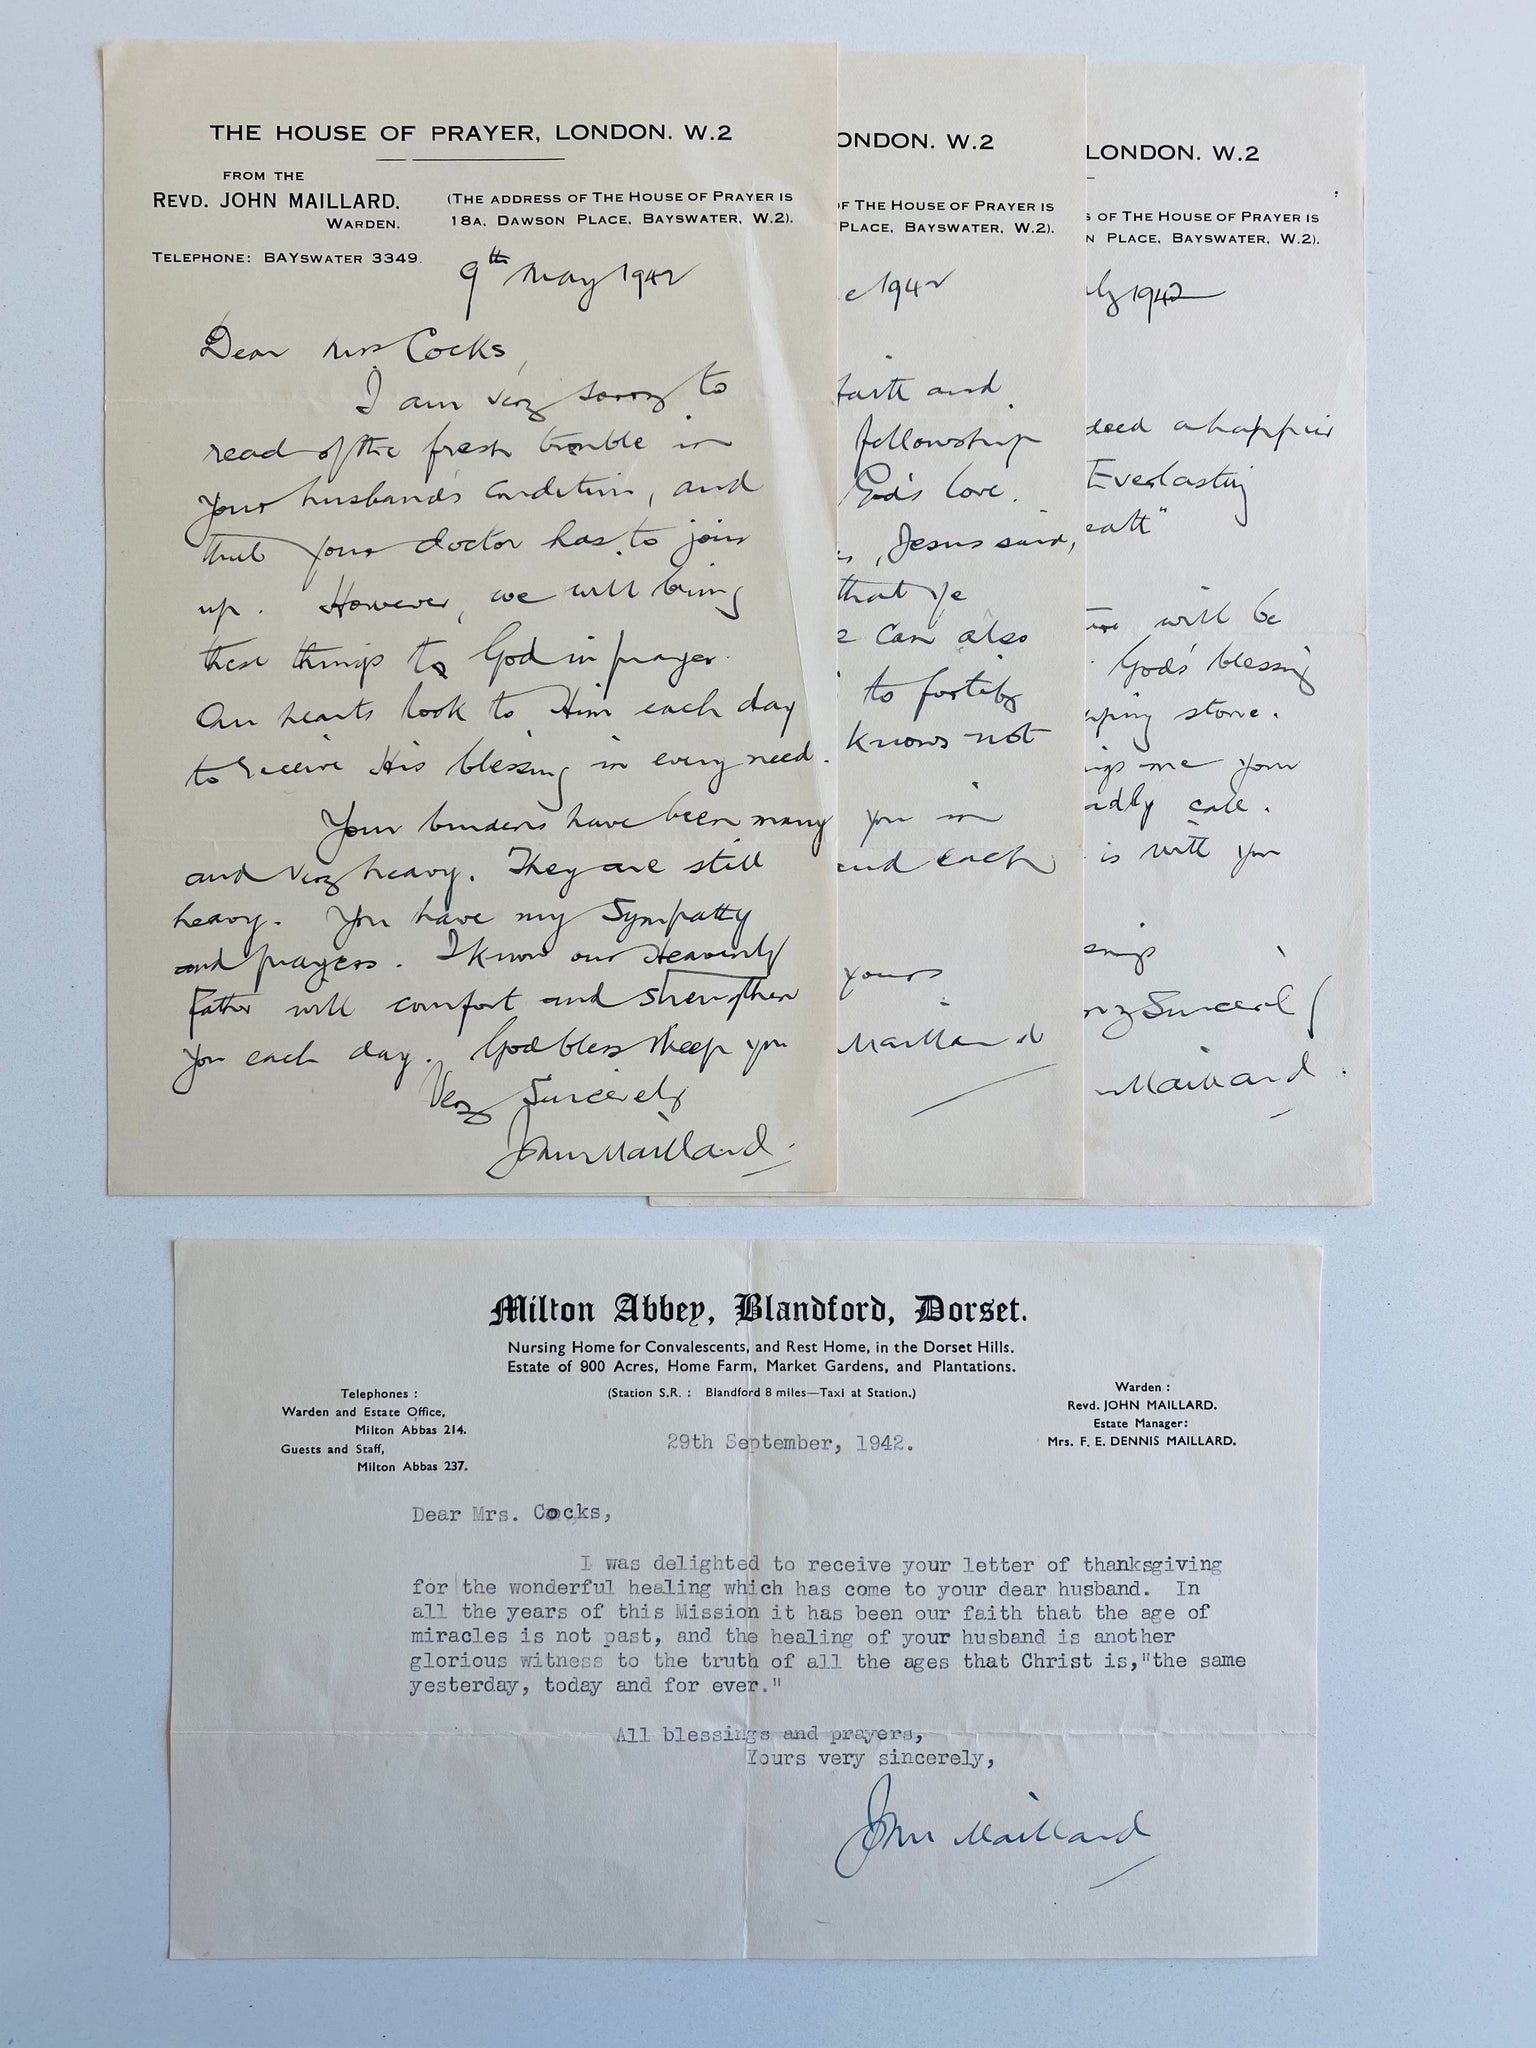 THE HOUSE OF PRAYER, LONDON. W.2
FROM THE
REVD. JOHN MAILLARD,
WARDEN.
(THE ADDRESS OF THE HOUSE OF PRAYER IS
18A, DAWSON PLACE, BAYSWATER, W.2).
TELEPHONE: BAYSWATER 3349.
9th May 1942
Dear Mrs Cocks,
I am very sorry to
read of the fresh trouble in
your husband's condition, and
that your doctor has to join
up. However, we will bring
these things to God in prayer.
Our hearts look to Him each day
to receive His blessing in every need.
Your burdens have been many
and very heavy. They are still
heavy. You have my sympathy
and prayers. I know our Heavenly
Father will comfort and strengthen
you each day. God bless & keep you
Very Sincerely
John Maillard.
ONDON. W.2
OF THE HOUSE OF PRAYER IS
PLACE, BAYSWATER, W.2).
e 1942
faith and
fellowship
God's love.
, Jesus said,
that ye
can also
to fortify
knows not
you in
and each
yours
Maillard
LONDON. W.2
S OF THE HOUSE OF PRAYER IS
N PLACE, BAYSWATER, W.2).
ly 1942
deed a happier
Everlasting
eath"
will be
God's blessing
pping stone.
ngs me your
adly call.
is with you
ssings
ery Sincerely
Maillard.
Milton Abbey, Blandford, Dorset.
Nursing Home for Convalescents, and Rest Home, in the Dorset Hills.
Estate of 900 Acres, Home Farm, Market Gardens, and Plantations.
(Station S.R. : Blandford 8 miles—Taxi at Station.)
Telephones :
Warden and Estate Office,
Milton Abbas 214.
Guests and Staff,
Milton Abbas 237.
Warden :
Revd. JOHN MAILLARD.
Estate Manager:
Mrs. F. E. DENNIS MAILLARD.
29th September, 1942.
Dear Mrs. Cocks,
I was delighted to receive your letter of thanksgiving
for the wonderful healing which has come to your dear husband. In
all the years of this Mission it has been our faith that the age of
miracles is not past, and the healing of your husband is another
glorious witness to the truth of all the ages that Christ is,"the same
yesterday, today and for ever."
All blessings and prayers,
Yours very sincerely,
John Maillard